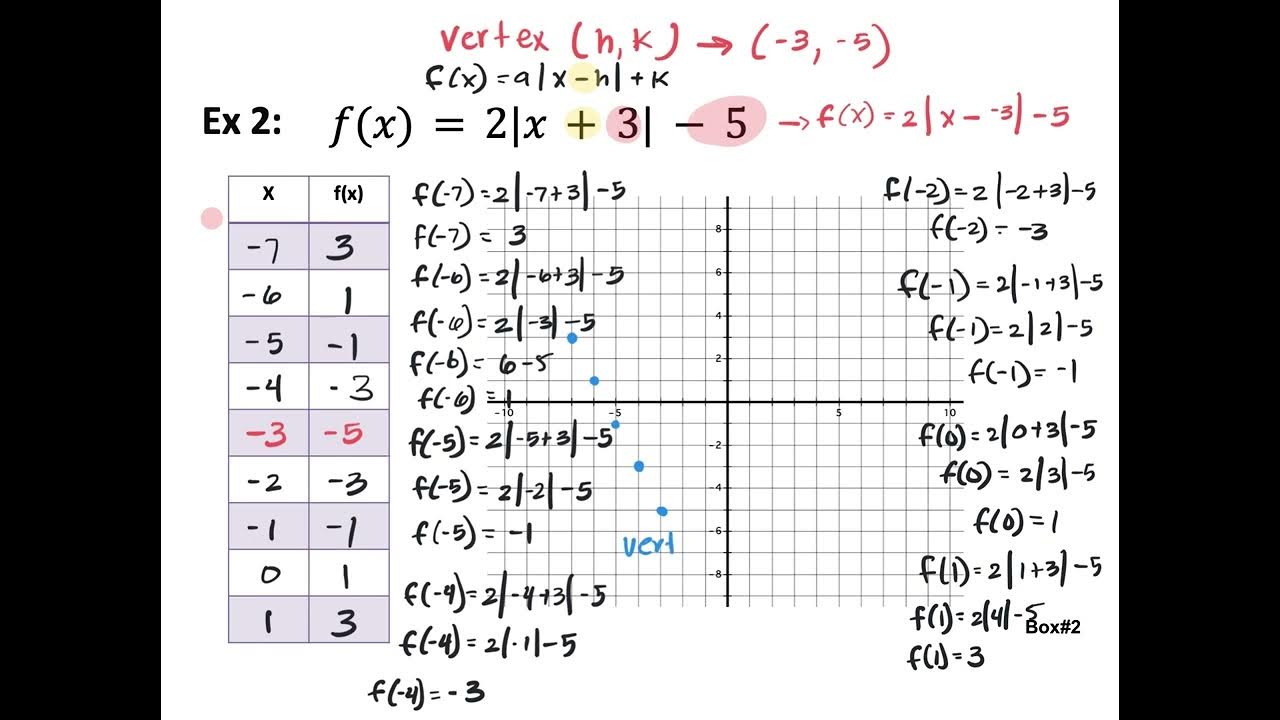 vertex (h, k) → (-3, -5)
f(x) = a|x - h| + k
Ex 2: f(x) = 2|x + 3| - 5 → f(x) = 2|x - -3| - 5
x f(x)
-7 3
-6 1
-5 -1
-4 -3
-3 -5
-2 -3
-1 -1
0 1
1 3
f(-7) = 2|-7+3| - 5
f(-7) = 3
f(-6) = 2|-6+3| - 5
f(-6) = 2|-3| - 5
f(-6) = 6 - 5
f(-6) = 1
f(-5) = 2|-5+3| - 5
f(-5) = 2|-2| - 5
f(-5) = -1
f(-4) = 2|-4+3| - 5
f(-4) = 2|-1| - 5
f(-4) = -3
8
6
4
2
-10 -5 5 10
-2
-4
-6
-8
vert
f(-2) = 2|-2+3| - 5
f(-2) = -3
f(-1) = 2|-1+3| - 5
f(-1) = 2|2| - 5
f(-1) = -1
f(0) = 2|0+3| - 5
f(0) = 2|3| - 5
f(0) = 1
f(1) = 2|1+3| - 5
f(1) = 2|4| - 5
Box#2
f(1) = 3